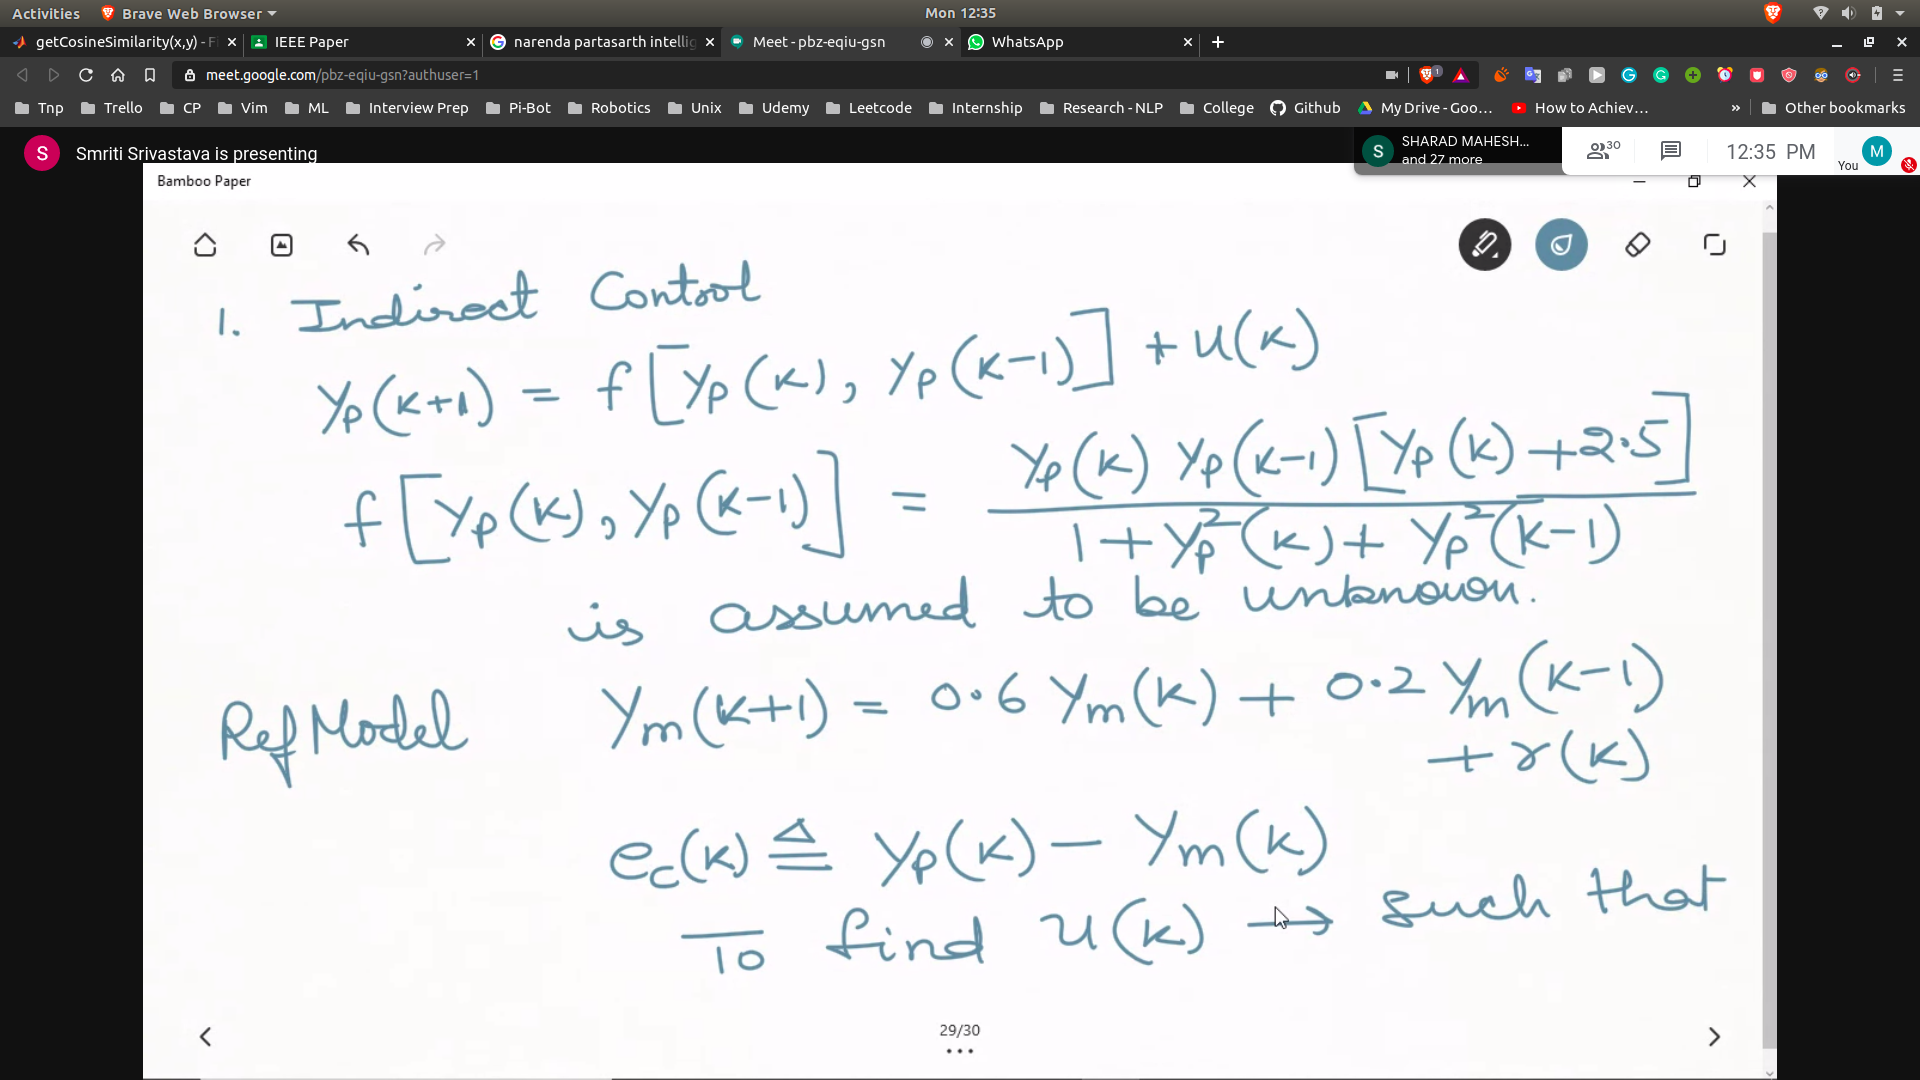 Activities Brave Web Browser Mon 12:35
getCosineSimilarity(x,y) - F IEEE Paper narenda partasarth intellig Meet - pbz-eqiu-gsn WhatsApp
meet.google.com/pbz-eqiu-gsn?authuser=1
Tnp Trello CP Vim ML Interview Prep Pi-Bot Robotics Unix Udemy Leetcode Internship Research - NLP College Github My Drive - Goo... How to Achiev... » Other bookmarks
S Smriti Srivastava is presenting
S SHARAD MAHESH... and 27 more
30 12:35 PM You M
Bamboo Paper
1. Indirect Control
yp(k+1) = f[yp(k), yp(k-1)] + u(k)
f[yp(k), yp(k-1)] = yp(k) yp(k-1) [yp(k) + 2.5] / 1 + yp²(k) + yp²(k-1)
is assumed to be unknown.
Ref Model ym(k+1) = 0.6 ym(k) + 0.2 ym(k-1)
+ r(k)
ec(k) ≜ yp(k) - ym(k)
To find u(k) → such that
29/30